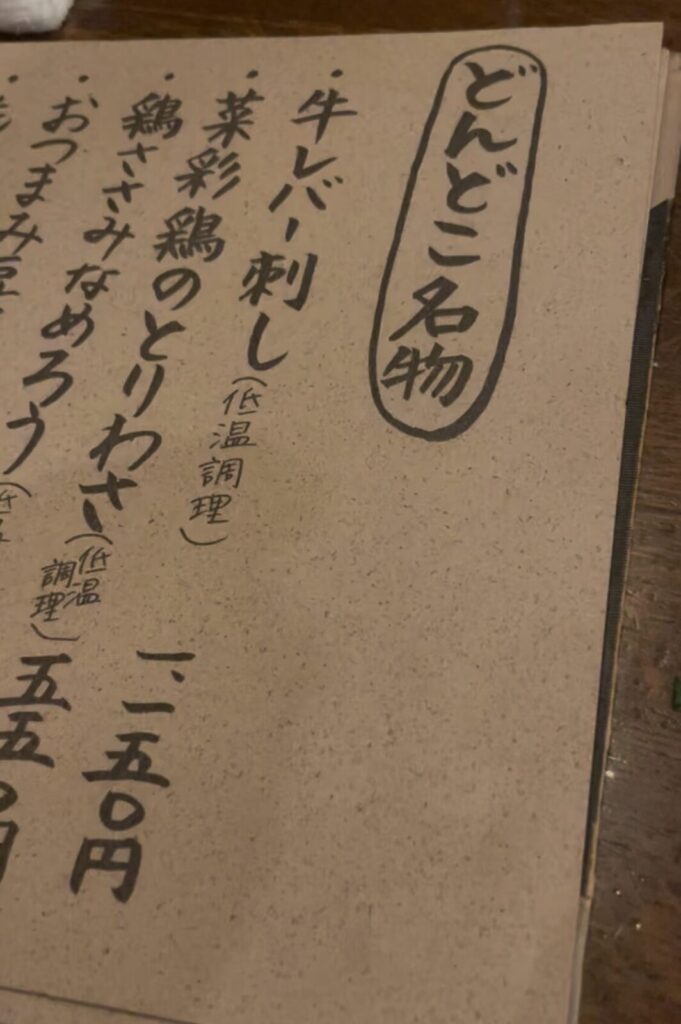 どんどこ名物
・牛レバー刺し(低温調理) 一、一五〇円
・菜彩鶏のとりわさ(低温調理) 五五〇円
・鶏ささみなめろう(低
・おつまみ